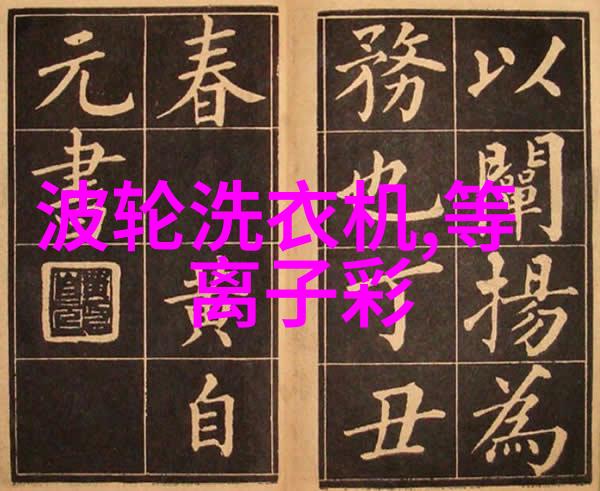 以闡揚為
務也丁丑
春 黃自
元書
波轮洗衣机,等
离子彩